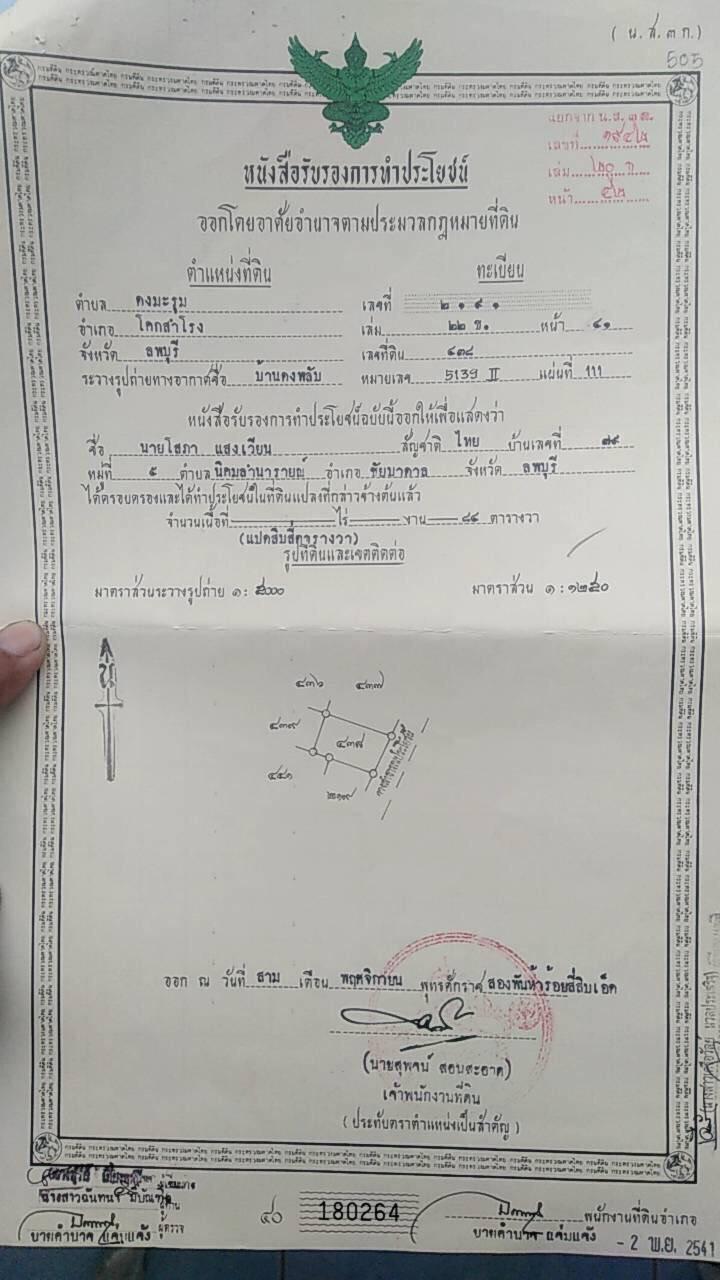 ( น.ส.๓ ก.)
505
แยกจาก น.ส.
เลขที่
เล่ม
หน้า
หนังสือรับรองการทำประโยชน์
ออกโดยอาศัยอำนาจตามประมวลกฎหมายที่ดิน
ตำแหน่งที่ดิน ทะเบียน
ตำบล ดงมะรุม เลขที่ ๒๑๙๑
อำเภอ โคกสำโรง เล่ม ๒๒ ข. หน้า ๔๑
จังหวัด ลพบุรี เลขที่ดิน ๔๓๘
ระวางรูปถ่ายทางอากาศชื่อ บ้านดงพลับ หมายเลข 5139 II แผ่นที่ 111
หนังสือรับรองการทำประโยชน์ฉบับนี้ออกให้เพื่อแสดงว่า
ชื่อ นายโสภา แสงเวียน สัญชาติ ไทย บ้านเลขที่
หมู่ที่ ๕ ตำบล นิคมลำนารายณ์ อำเภอ ชัยบาดาล จังหวัด ลพบุรี
ได้ครอบครองและได้ทำประโยชน์ในที่ดินแปลงที่กล่าวข้างต้นแล้ว
จำนวนเนื้อที่ - ไร่ - งาน ๘๔ ตารางวา
(แปดสิบสี่ตารางวา)
รูปที่ดินและเขตติดต่อ
มาตราส่วนระวางรูปถ่าย ๑ : ๕๐๐๐ มาตราส่วน ๑ : ๑๒๕๐
น
๔๓๖ ๔๓๗
๔๓๙ ๔๓๘
๔๔๑
ทางสาธารณประโยชน์
ออก ณ วันที่ สาม เดือน พฤศจิกายน พุทธศักราช สองพันห้าร้อยสี่สิบเอ็ด
(นายสุพจน์ สอนสะอาด)
เจ้าพนักงานที่ดิน
( ประทับตราตำแหน่งเป็นสำคัญ )
180264
พนักงานที่ดินอำเภอ
นายอำนาจ แจ่มแจ้ง
ผู้ตรวจ
นายอำนาจ แจ่มแจ้ง
- 2 พ.ย. 2541